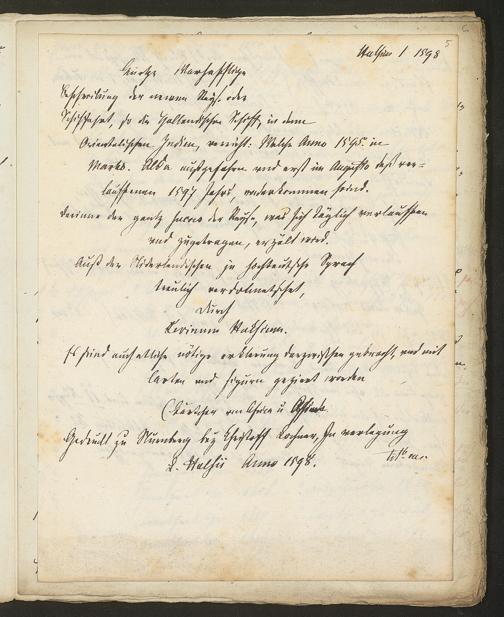 Hulsius I 1598
5
Kurtze Warhafftige
Beschreibung der newen Reyse oder
Schiffahrt, so die Holländischen Schiff, in den
Orientalischen Indien, verricht: Welche Anno 1595. im
Martio. Alda außgefahren und erst im Augusto deß ver-
lauffenen 1597 Jahrs, widerkommen seind.
darinne der gantz Succes der Reyse, was sich täglich verlauffen
und zugetragen, erzält wird.
Auß der Niderländischen in hochteutsche Sprach
treulich verdolmetschet,
durch
Levinum Hulsium.
Es sind auch etliche nötige erklärung darzwischen gebracht, und mit
Carten und Figuren geziert worden
(Kärtchen von Africa u
Gedruckt zu Nürnberg bey Christoff Lochner, In verlegung
L. Hulsii Anno 1598.